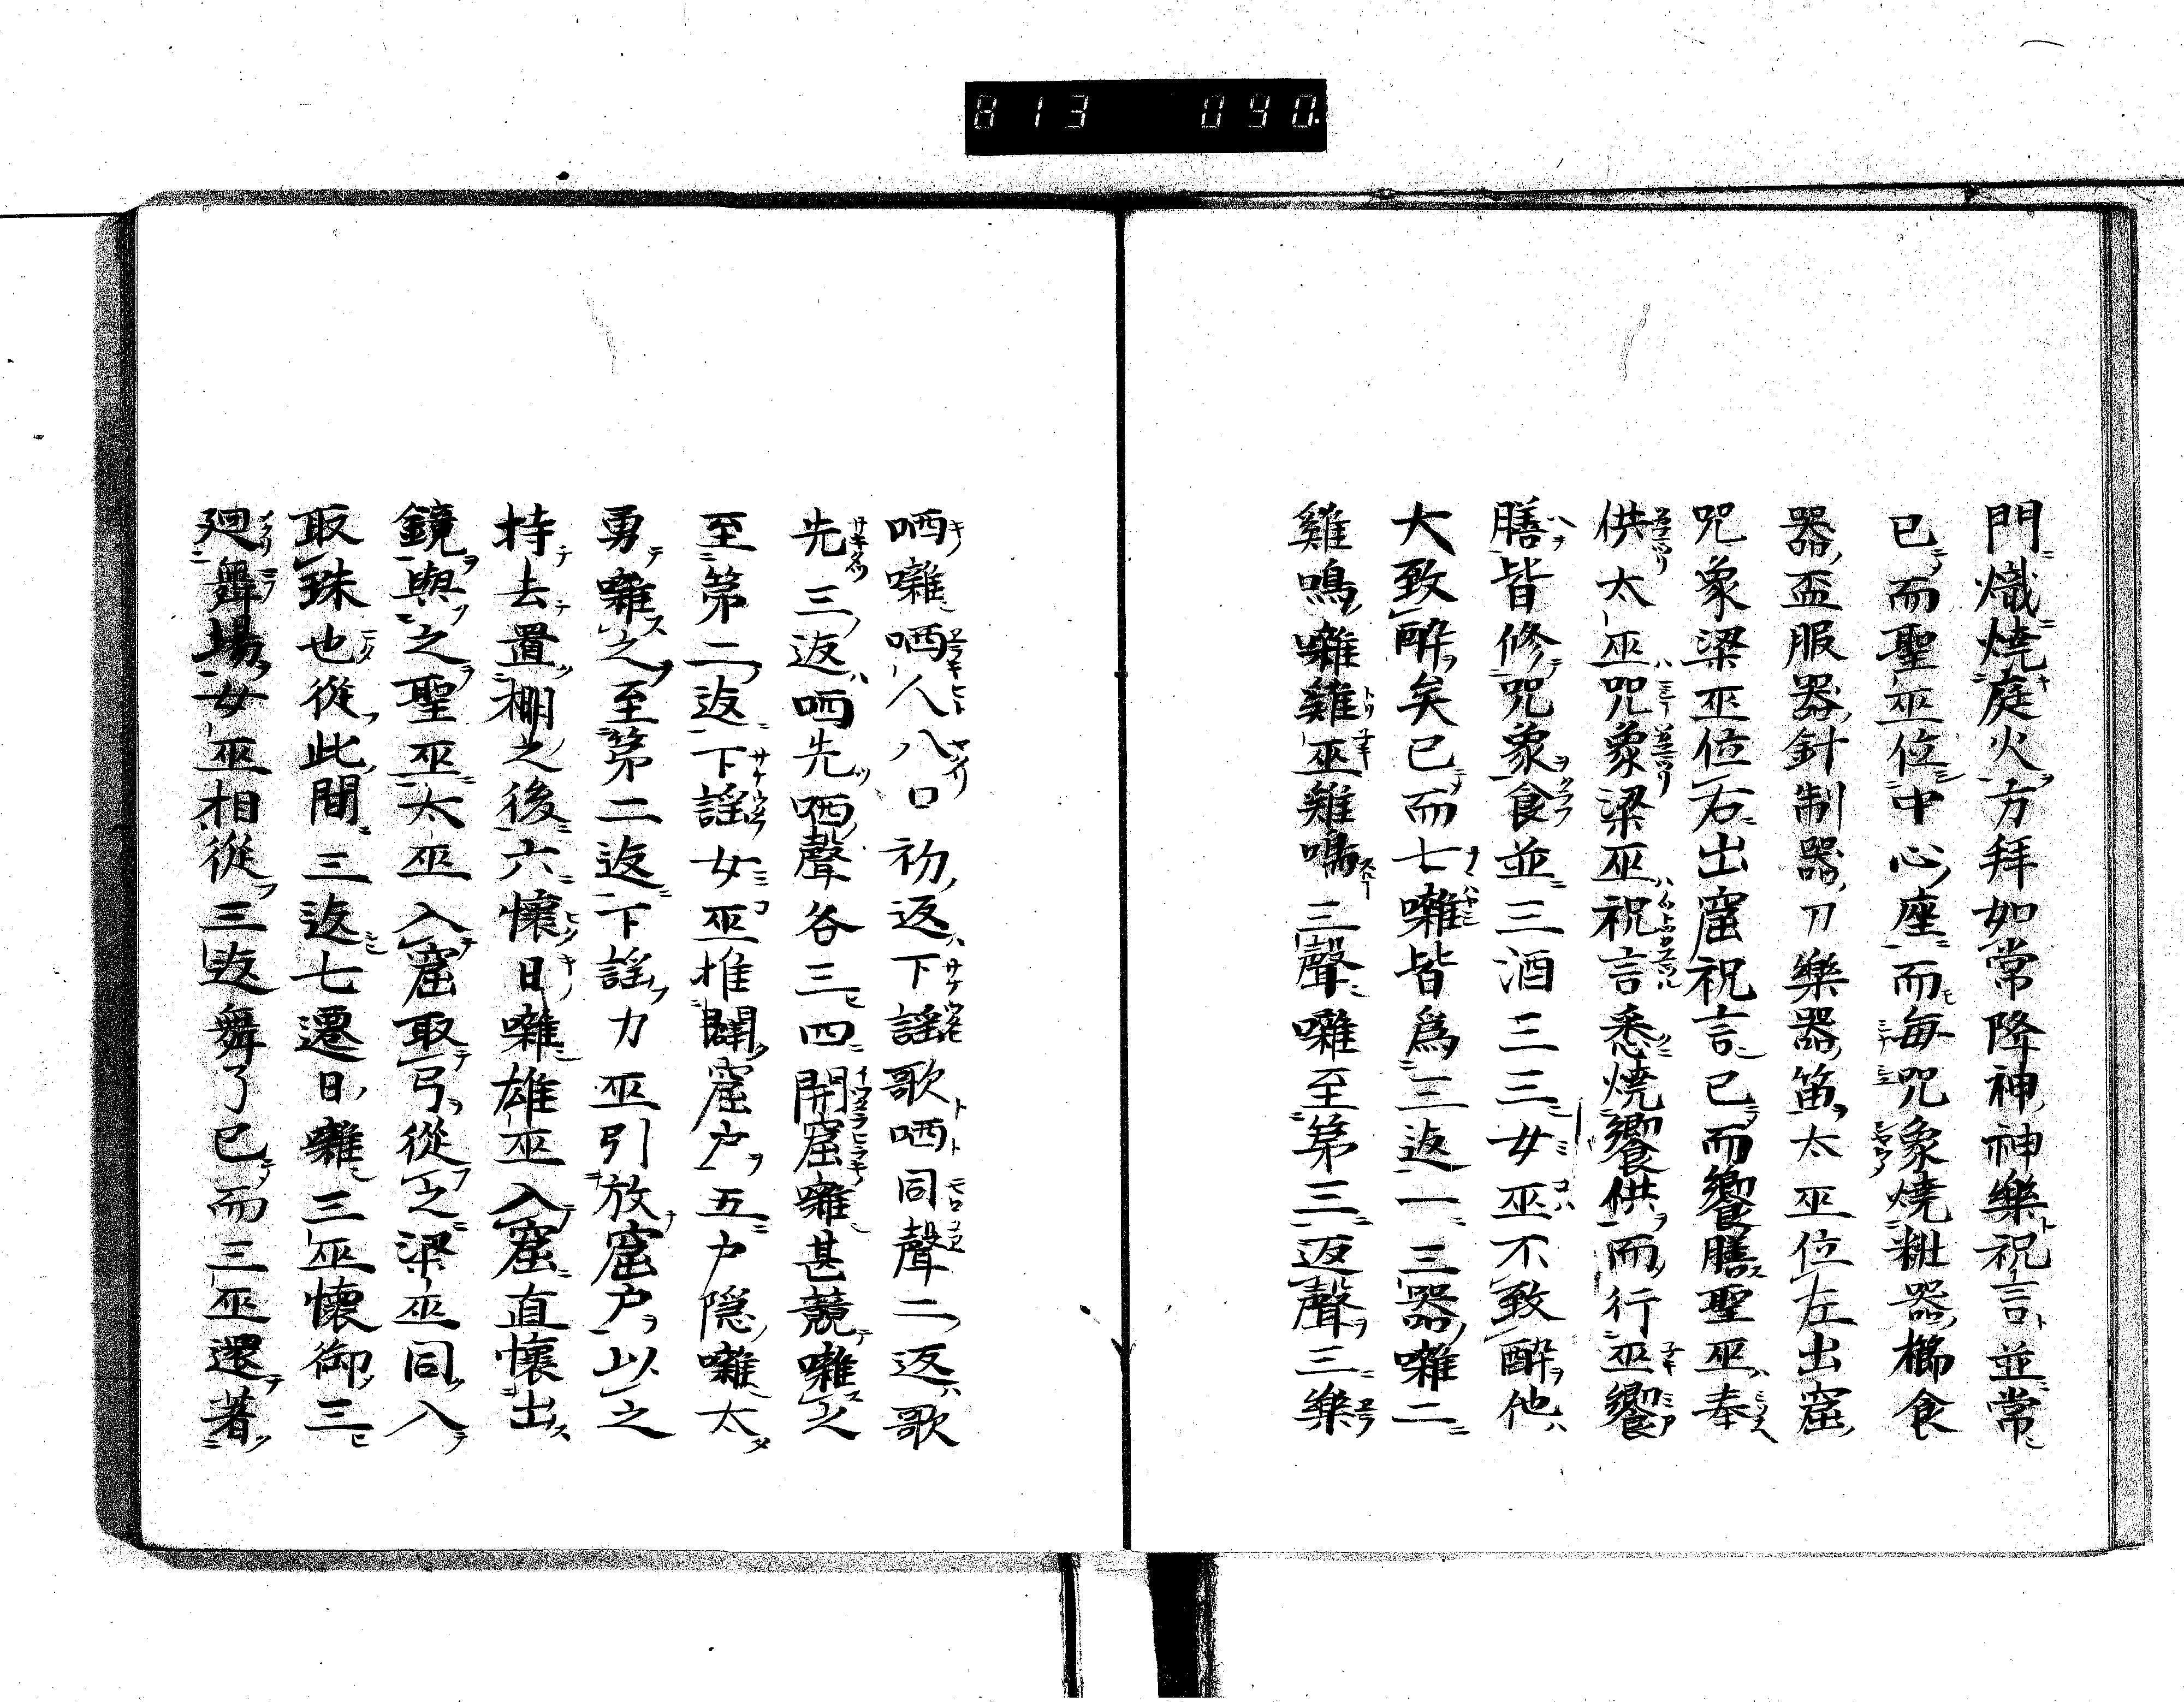 813 090.
門熾燒庭火方拜如常降神神樂祝言並常
已而聖巫位中心座而每咒象燒粃器櫛食
器盃服器針制器刀樂器笛太巫位左出窟
咒象梁巫位右出窟祝言已而饗膳聖巫奉
供太巫咒象梁巫祝言悉燒饗供而行巫饗
膳皆修咒象食並三酒三三女巫不致醉他
大致醉矣已而七囃皆爲三返一三器囃二
雞鳴囃雞巫雞鳴三聲囃至第三返聲三樂
哂囃哂人八口初返下謡歌哂同聲二返歌
先三返哂先哂聲各三四開窟囃甚競囃之
至第二返下謡女巫推開窟戶五戶隱囃太
勇囃之至第二返下謡力巫引放窟戶以之
持去置棚之後六懷日囃雄巫入窟直懷出
鏡與之聖巫太巫入窟取弓從之梁巫同入
取珠也從此間三返七遷日囃三巫懷御三
廻舞場女巫相從三返舞了已而三巫還著